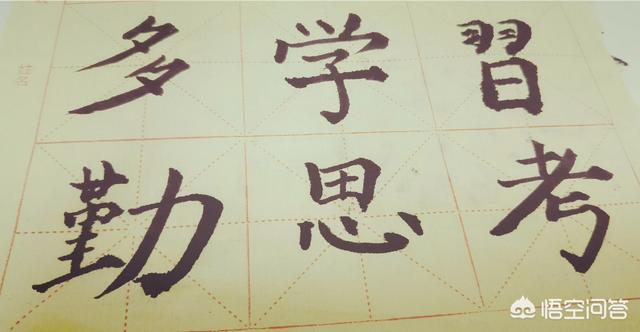 多学習
勤思考
悟空问答